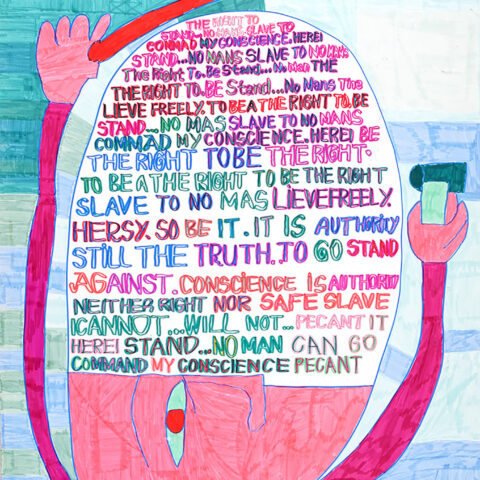 THE RIGHT TO
STAND...NO MANS SLAVE TO
COMMAD MY CONSCIENCE. HERE!
STAND...NO NANS SLAVE TO NO
The Right To. Be Stand... No Man THE
THE RIGHT TO. BE Stand...No Nans The
LIEVE FREELY. TO BE A THE RIGHT TO. BE
STAND...NO MAS SLAVE TO NO NANS
COMMAD MY CONSCIENCE. HERE! BE
THE RIGHT TO BE THE RIGHT.
TO BE A THE RIGHT TO BE THE RIGHT
SLAVE TO NO MAS LIEVEFREELY.
HERSY. SO BE IT. IT IS AUTHORITY
STILL THE TRUTH. TO GO STAND
AGAINST. CONSCIENCE IS AUTHORIO
NEITHER RIGHT NOR SAFE SLAVE
ICANNOT...WILL NOT... PECANT IT
HERE! STAND...NO MAN CAN GO
COMMAND MY CONSCIENCE PECANT